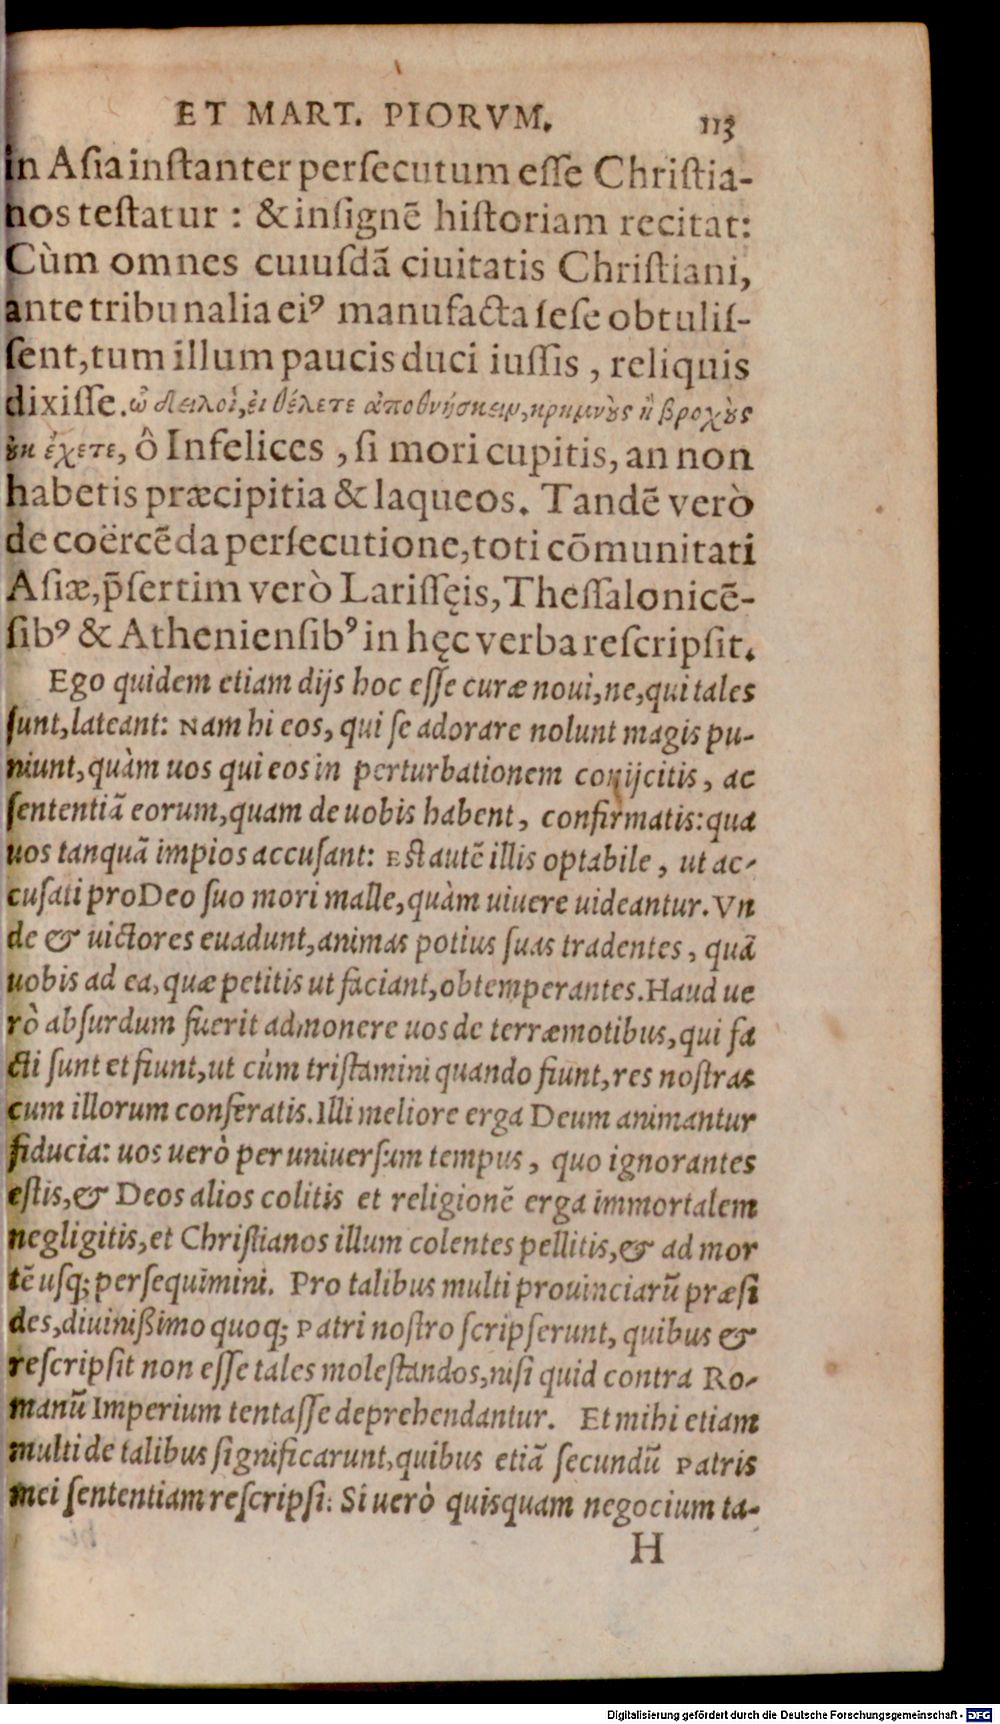 ET MART. PIORVM. 113
in Aſia inſtanter perſecutum eſſe Chriſtia-
nos teſtatur : & inſignē hiſtoriam recitat:
Cùm omnes cuiuſdā ciuitatis Chriſtiani,
ante tribunalia eiꝰ manufacta ſeſe obtuliſ-
ſent, tum illum paucis duci iuſſis, reliquis
dixiſſe. ὦ δειλοὶ, ἐι θέλετε ἀποθνήσκειν, κρημνȣ̀ς ἢ βροχȣ̀ς
ȣ̓κ ἔχετε, ô Infelices, ſi mori cupitis, an non
habetis præcipitia & laqueos. Tandē verò
de coërcēda perſecutione, toti cōmunitati
Aſiæ, p̄ſertim verò Lariſſęis, Theſſalonicē-
ſibꝰ & Athenienſibꝰ in hęc verba reſcripſit.
Ego quidem etiam dijs hoc eſſe curæ noui, ne, qui tales
ſunt, lateant: Nam hi eos, qui ſe adorare nolunt magis pu-
niunt, quàm uos qui eos in perturbationem conijcitis, ac
ſententiā eorum, quam de uobis habent, confirmatis: qua
uos tanquā impios accuſant: Eſt autē illis optabile, ut ac-
cuſati pro Deo ſuo mori malle, quàm uiuere uideantur. Vn
de & uictores euadunt, animas potius ſuas tradentes, quā
uobis ad ea, quæ petitis ut faciant, obtemperantes. Haud ue
rò abſurdum fuerit admonere uos de terræmotibus, qui fa
cti ſunt et fiunt, ut cùm triſtamini quando fiunt, res noſtras
cum illorum conferatis. Illi meliore erga Deum animantur
fiducia: uos uerò per uniuerſum tempus, quo ignorantes
eſtis, & Deos alios colitis et religionē erga immortalem
negligitis, et Chriſtianos illum colentes pellitis, & ad mor
tē uſq; perſequimini. Pro talibus multi prouinciarū præſi
des, diuinißimo quoq; Patri noſtro ſcripſerunt, quibus &
reſcripſit non eſſe tales moleſtandos, niſi quid contra Ro-
manū Imperium tentaſſe deprehendantur. Et mihi etiam
multi de talibus ſignificarunt, quibus etiā ſecundū Patris
mei ſententiam reſcripſi: Si uerò quisquam negocium ta-
H
Digitalisierung gefördert durch die Deutsche Forschungsgemeinschaft - DFG